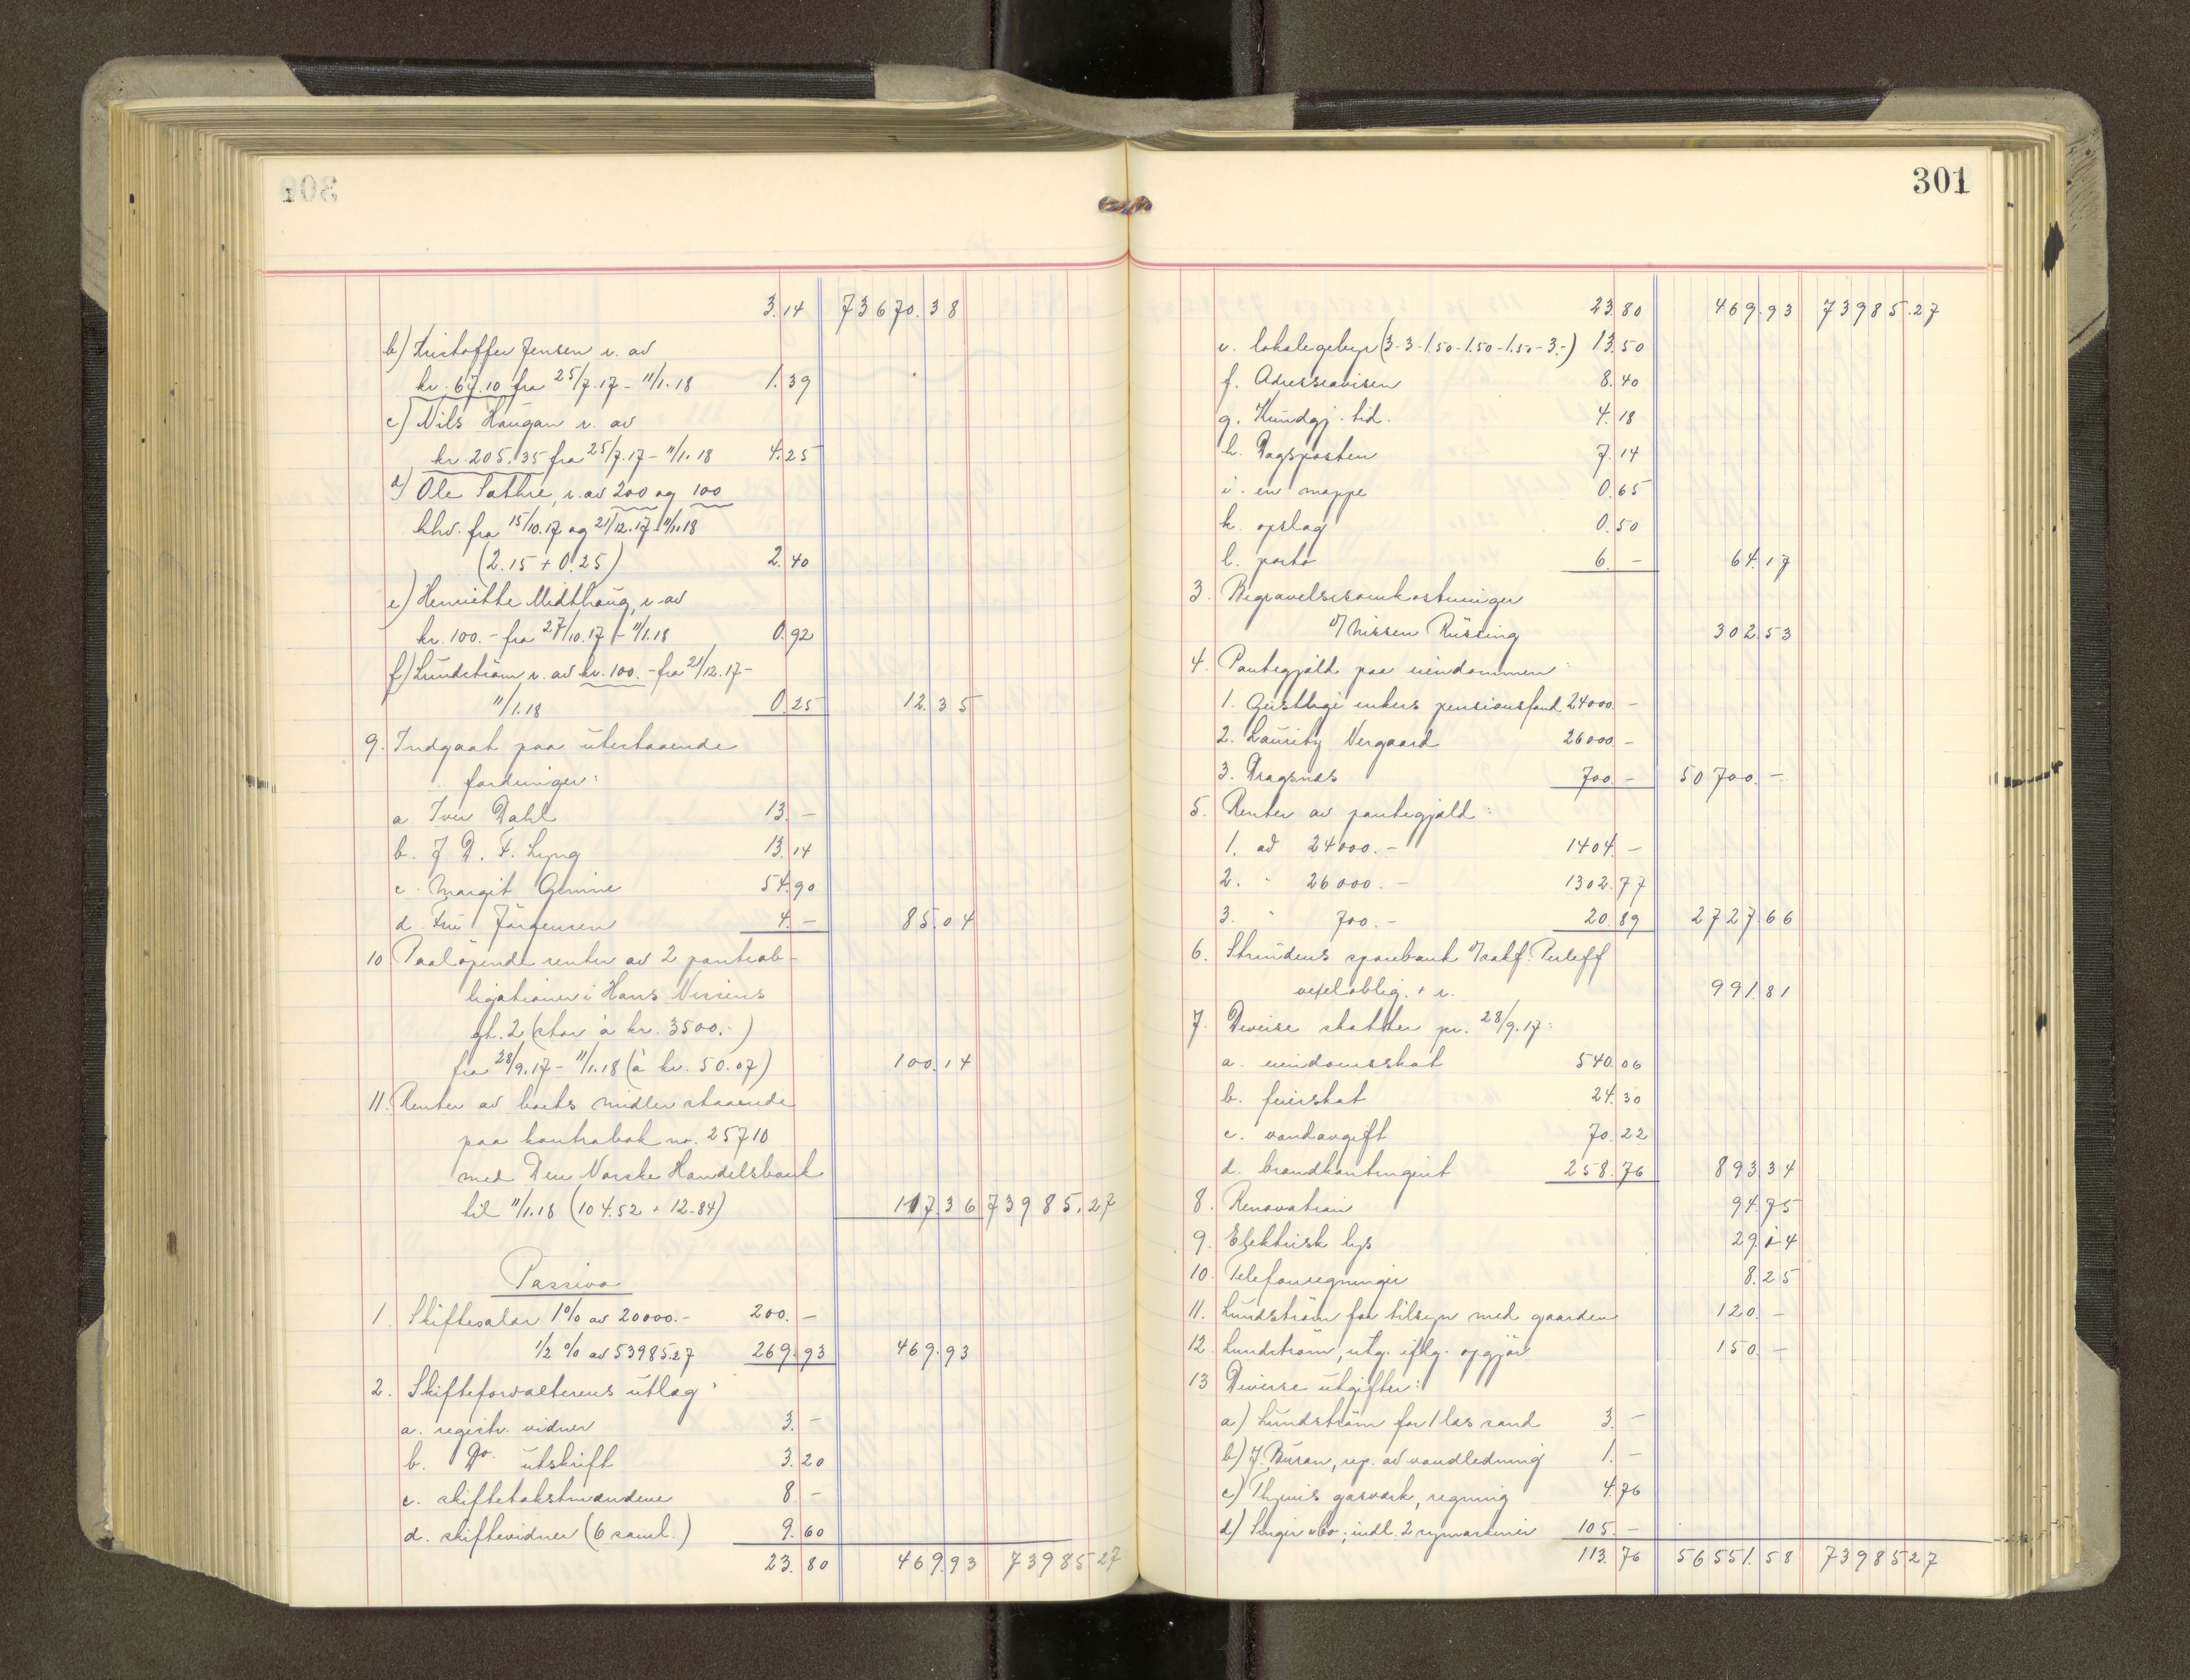 300
3.14 73670.38
b) Kristoffer Jensen r. av
kr. 67.10 fra 25/7.17 - 11/1.18 1.39
c) Nils Haugan r. av
kr. 205.35 fra 25/7.17 - 11/1.18 4.25
d) Ole Sathre, r. av 200 og 100
hhv. fra 15/10.17 og 21/12.17 - 11/1.18
(2.15 + 0.25) 2.40
e) Henriette Midthaug, r. av
kr. 100.- fra 27/10.17 - 11/1.18 0.92
f) Lundström r. av kr. 100.- fra 21/12.17 -
11/1.18 0.25 12.35
9. Indgaat paa utestaaende
fordringer:
a. Iver Dahl 13.-
b. J. D. F. Lyng 13.14
c. Margit 54.90
d. Fru Jörgensen 4.- 85.04
10. Paalöpende renter av 2 pantob-
ligationer i Hans Nissens
gt. 2 (stor à kr. 3500.-)
fra 28/9.17 - 11/1.18 (à kr. 50.07) 100.14
11. Renter av boets midler staaende
paa kontrabok no. 25710
med Den Norske Handelsbank
til 11/1.18 (104.52 + 12.84) 117.36 73985.27
Passiva
1. Skiftesalær 1% av 20000.- 200.-
1/2 % av 53985.27 269.93 469.93
2. Skifteforvalterens utlæg:
a. registr. vidner 3.-
b. Do. utskrift 3.20
c. skiftetakstmændene 8.-
d. skiftevidner (6 saml.) 9.60
23.80 469.93 73985.27
301
23.80 469.93 73985.27
e. lokalegebyr (3-3-1.50-1.50-1.50-3.-) 13.50
f. Adresseavisen 8.40
g. Kundgj. tid. 4.18
h. Dagsposten 7.14
i. en mappe 0.65
k. opslag 0.50
l. porto 6.- 64.17
3. Begravelsesomkostninger
v/ Nissen Rüssing 302.53
4. Pantegjæld paa eiendommen:
1. Geistlige enkers pensionsfond 24000.-
2. Lauritz Vergaard 26000.-
3. Dragsnes 700.- 50700.-
5. Renter av pantegjæld:
1. ad 24000.- 1404.-
2. " 26000.- 1302.77
3. " 700.- 20.89 2727.66
6. Strindens sparebank v/ sakf.
vexeloblig. + r. 991.81
7. Diverse skatter pr. 28/9.17:
a. eiendomsskat 540.06
b. feierskat 24.30
c. vandavgift 70.22
d. brandkontingent 258.76 893.34
8. Renovation 94.75
9. Elektrisk lys 29.14
10. Telefonregninger 8.25
11. Lundström for tilsyn med gaarden 120.-
12. Lundström, utg. iflg. opgjör 150.-
13. Diverse utgifter:
a) Lundström for 1 læs sand 3.-
b) J. Buran, rep. av vandledning 1.-
c) Thjems gasverk, regning 4.76
d) Singer &Co., indl. 2 symaskiner 105.-
113.76 56551.58 73985.27